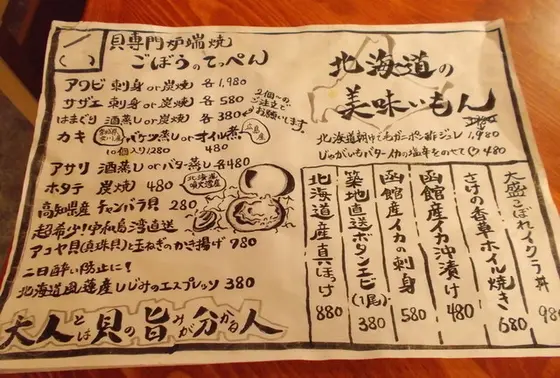 貝専門炉端焼
ごぼうのてっぺん
アワビ 刺身 or 炭焼 各1,980
サザエ 刺身 or 炭焼 各580
はまぐり 酒蒸し or 炭焼 各380
2個〜の
ご注文で
お願いします。
カキ バケツ蒸し or オイル煮 広島産
10個入り1280 480
アサリ 酒蒸し or バター蒸し 各480
ホタテ 炭焼 480 北海道噴火湾産
高知県産 チャンバラ貝 280
超希少!宇和島湾直送
アコヤ貝(真珠貝)と玉ねぎのかき揚げ 980
二日酔い防止に!
北海道風蓮産しじみのエスプレッソ 380
大人とは貝の旨みが分かる人
北海道の
美味いもん
北海道朝ゆで毛ガニ ポン酢ジュレ 1,980
じゃがいもバター イカの塩辛をのせて♡ 480
大盛こぼれイクラ丼 98
さけの香草ホイル焼き 680
函館産イカ沖漬け 480
函館産イカの刺身 580
築地直送ボタンエビ(1尾) 380
北海道産真ほっけ 880